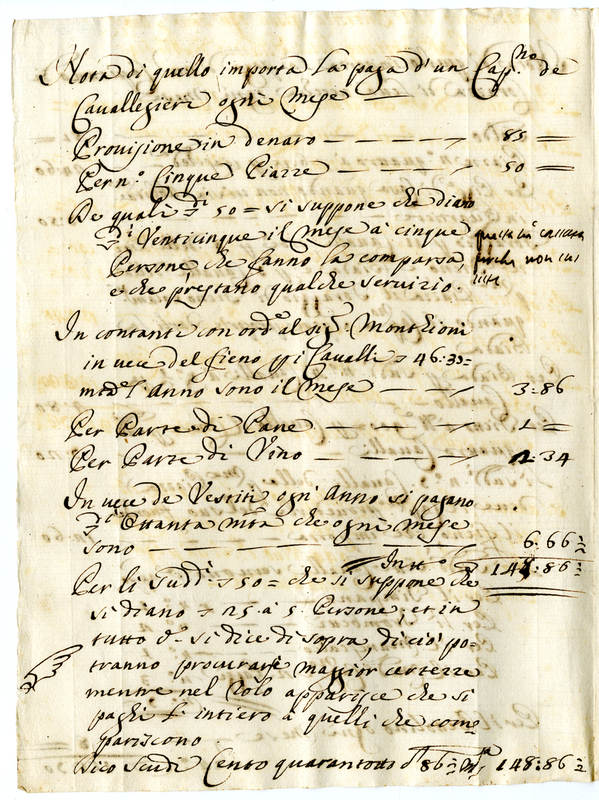 Nota di quello importa la paga d'un Cap.no de
Cavallegieri ogni Mese —
Provisione in denaro — — — — 85 =
Per n.o Cinque Piazze — — — — 50 =
De quali di 50 = si suppone che diano
Venticinque il Mese à cinque
Persone che fanno la comparsa,
e che prestano qualche servizio.
In contanti con ord.e al sig.
in vece del fieno Cavalli 46:35=
l'Anno sono il Mese — — — 3:86
Per Parte di Pane — — — — 1: =
Per Parte di Vino — — — — 2:34
In vece de Vestiti ogni Anno si pagano
Ottanta mta che ogni mese
sono — — — — 6:66 2/3
In tt.o 148:86 2/3
Per li sudd.i 50 = che si suppone che
si diano 25 à 5 Persone, et in
tutto d.o si dice di sopra, di ciò po=
tranno procurarsi maggior certezze
mentre nel Rolo apparisce che si
paghi l'intiero à quelli che com=
pariscono
Dico Scudi Cento quarantotto 86 2/3 mta 148:86 2/3